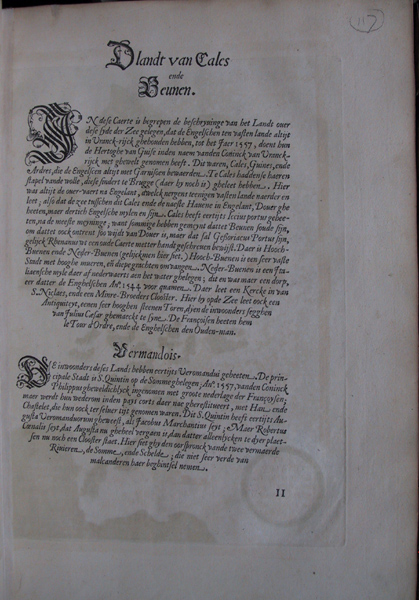 117
Dlandt van Cales
ende
Beunen.
IN dese Caerte is begrepen de beschryvinge van het Landt over
dese syde der Zee gelegen, dat de Engelschen ten vasten lande altijt
in Vranck-rijck ghehouden hebben, tot het Jaer 1557, doent hun
de Hertoghe van Guise inden naem vanden Coninck van Vranck-
rijck met ghewelt genomen heeft. Die waren, Cales, Guines, ende
Ardres, die de Engelsen altijt met Garnisoen bewaerden. Te Cales hadden se haeren
stapel vande wolle, diese sindert te Brugge (daer hy noch is) gheleet hebben. Hier
was altijt de over-vaert na Engelant, dwelck nergens teenigen vasten lande naerder en
leet; also dat de zee tusschen dit Cales ende de naeste Havene in Engelant, Dover ghe
heeten, maer dertich Engelsche mylen en sijn. Cales heeft eertijts Iccius portus gehee-
ten, na de meeste meyninge; want sommige hebben gemeynt datter Beunen soude sijn,
om dattet oock ontrent soo wijdt van Dover is, maer dat sal Gesoriacus Portus sijn,
gelijck Rhenanus wt een oude Caerte metter handt geschreven bewijst. Daer is Hooch-
Buenen ende Neder-Buenen (gelijckmen hier siet.) Hooch-Buenen is een seer vaste
Stadt met hooghe mueren, ende diepe grachten omvangen. Neder-Buenen is een Ita-
liaensche myle daer af nederwaerts aen het water ghelegen; dit en was maer een dorp,
eer datter de Enghelschen Ao. 1544 voor quamen. Daer leet een Kercke in van
S. Niclaes, ende een Minre-Broeders Clooster. Hier by opde Zee leet oock een
Antiquiteyt, eenen seer hooghen steenen Toren, dyen de inwoonders segghen
van Julius Caesar ghemaeckt te syne. De Françoisen heeten hem
le Tour d'Ordre, ende de Enghelschen den Ouden-man.
Vermandois.
DE inwoonders deses Landts hebben eertijts Veromandui geheeten. De prin-
cipale Stadt is S. Quintin op de Somme ghelegen; Ao. 1557, vanden Coninck
Philippus gheweldichlyck ingenomen met groote nederlage der Françoysen;
maer werdt hun wederom inden pays corts daer nae gherestitueert, met Han ende
Chastelet, die hun oock ter selver tijt genomen waren. Dit S. Quintin heeft eertijts Au-
gusta Veromanduorum gheweest, als Jacobus Marchantius seyt; Maer Robertus
Cœnalis seyt, dat Augusta nu gheheel vergaen is, dan datter alleenlycken te dyer plaet-
sen nu noch een Clooster staet. Hier siet ghy den oorspronck vande twee vermaerde
Rivieren, de Somme, ende Schelde; die niet seer verde van
malcanderen haer beghintsel nemen.
11